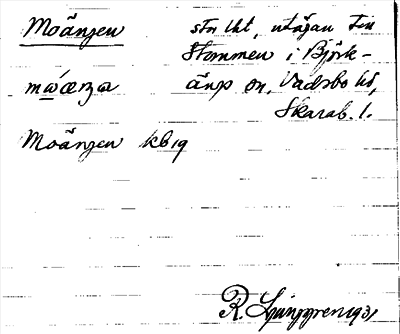 Moängen stn lht, utägan till
Stommen i Björk-
ängs sn, Vadsbo hd,
Skarab. l.
Moängen kb 19
R. Ljunggren 1931